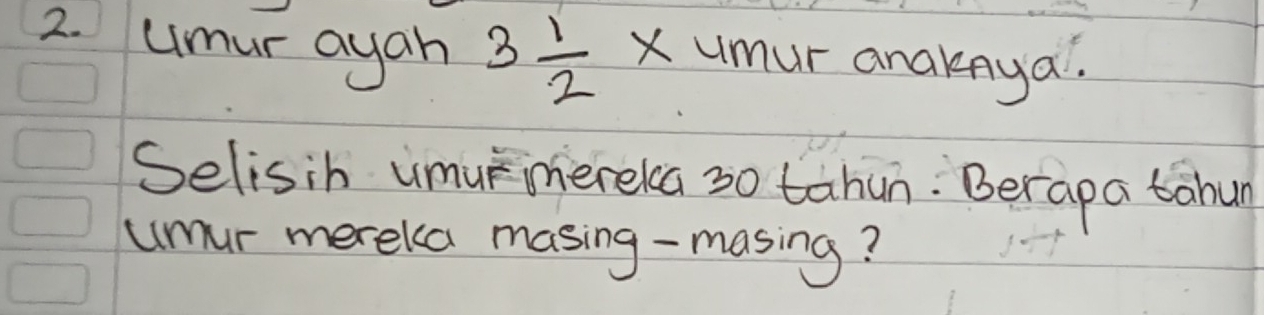 2. Umur ayah 3 1/2 x umur anaknya.
Selisih umur mereka 30 tahun. Berapa tahun
umur mereka masing-masing?